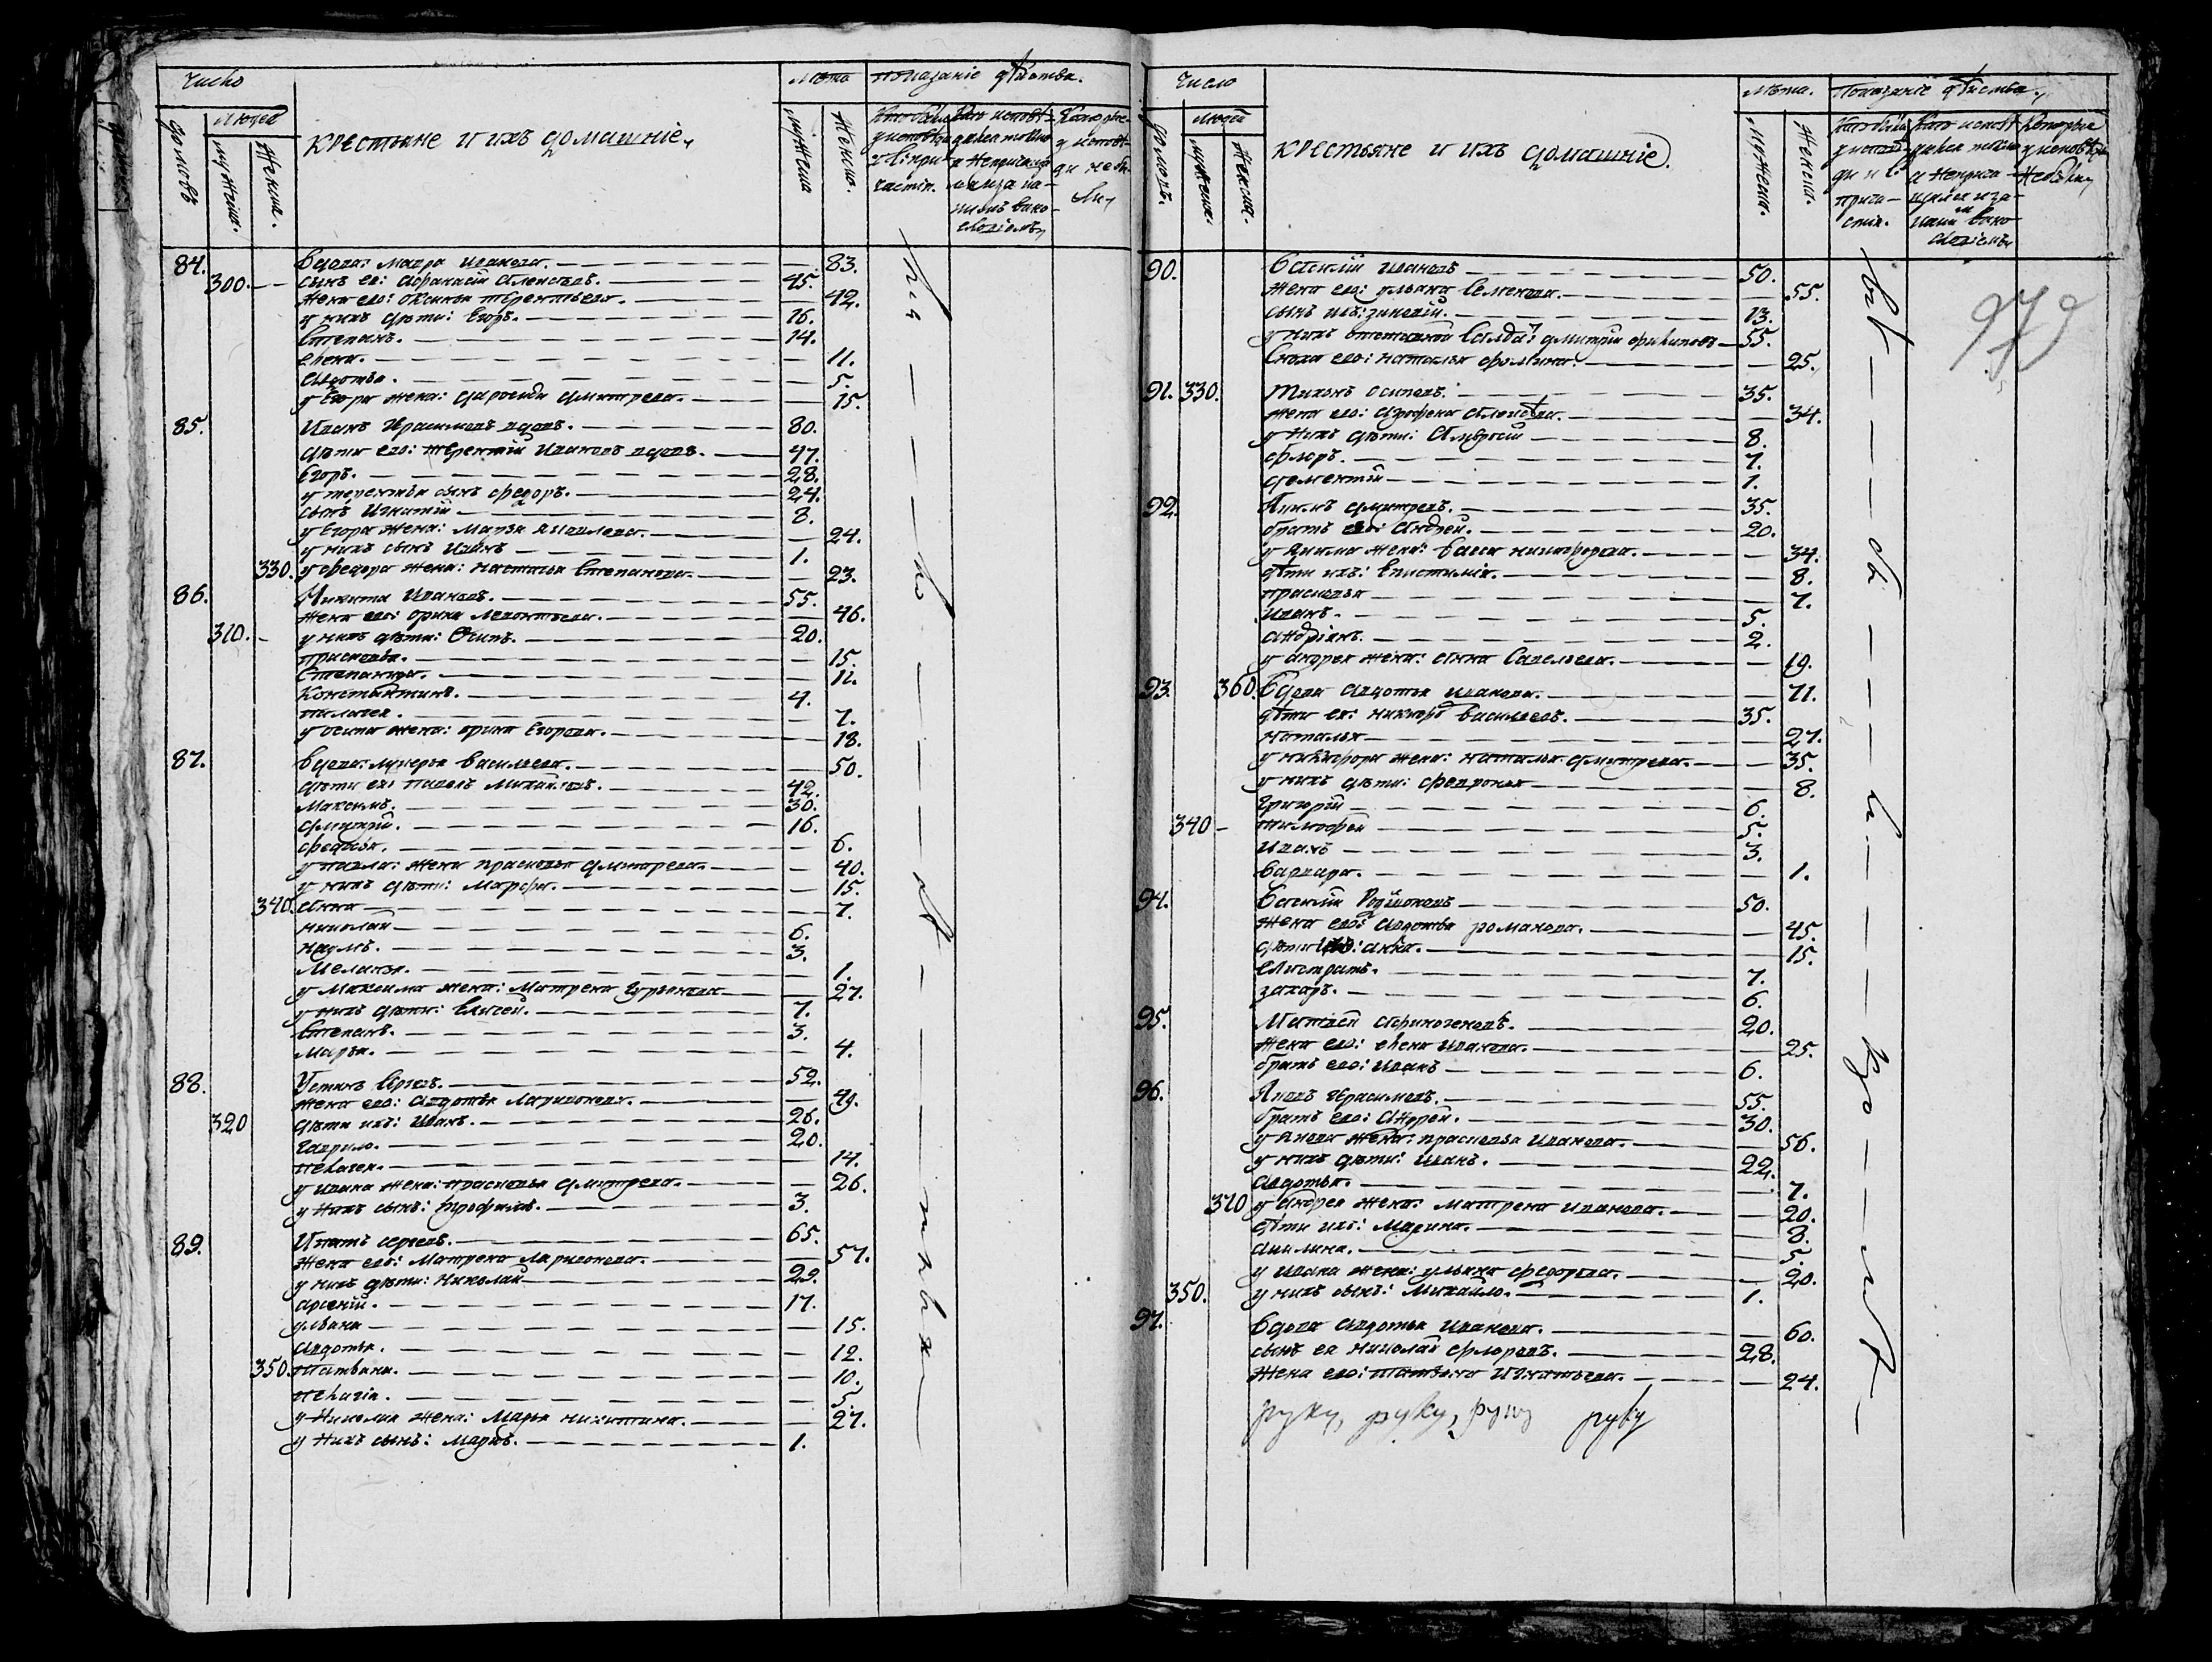 Число
Лѣта
Показаніе дѣйства.
Людей
домовъ
мужеска.
Женска.
крестьяне и ихъ домашніе,
мужеска
Женска.
84. Вдова: Мавра Иванова. 83.
300. сынъ ее: Афанасій Алексѣевъ. 45.
жена его: Оксинья Терентьева. 42.
у нихъ дѣти: Егоръ. 16.
Степанъ. 14.
елена. 11.
Авдотья. 5.
у Егора жена: Дмитрева. 15.
85. Иванъ Герасимовъ вдовъ. 80.
дѣти его: терентій Ивановъ вдовъ. 47.
Егоръ. 28.
у терентья сынъ федоръ. 24.
сынъ Игнатій 8.
у Егора жена: Марья Яковлева. 24.
у нихъ сынъ Иванъ 1.
330. у федора жена: настасья Степанова. 23.
86. Никита Ивановъ. 55.
жена его: орина Леонтьева. 46.
310. у нихъ дѣти: Осипъ. 20.
прасковья. 15.
Степанида. 11.
Константинъ. 4.
пелагея. 7.
у осипа жена: орина Егорова. 18.
87. Вдова: лукерья Васильева. 50.
дѣти ея: павелъ Михайловъ. 42.
Максимъ. 30.
дмитрій. 16.
федосья. 6.
у павла: жена прасковья дмитрева. 40.
у нихъ дѣти: Марфа. 15.
340. Анна 7.
николай 6.
наумъ. 3.
Меланья. 1.
у Максима жена: Матрена Гурьянова 27.
у нихъ дѣти: Елисей. 7.
Степанъ. 3.
Марья. 4.
88. Устинъ Сергѣевъ. 52.
жена его: Авдотья Ларивонова. 49.
320 дѣти ихъ: Иванъ. 26.
Гаврило. 20.
пелагея. 14.
у ивана жена: прасковья дмитрева. 26.
у нихъ сынъ: трофимъ. 3.
89. Ипатъ сергеевъ. 65.
жена его: Матрена Ларивонова. 57.
у нихъ дѣти: Николай 29.
арсеній. 17.
ульяна 15.
Авдотья. 12.
350. Татьяна. 10.
пелагія. 5.
у Николая жена: Марья никитина. 27.
у нихъ сынъ: Марко. 1.
Число
Лѣта.
Показаніе дѣйства.
Людей
домовъ.
мужеска.
Женска.
крестьяне и ихъ домашніе.
мужеска.
Женска.
979
90. Василій Ивановъ 50.
жена его: ульяна Семенова. 55.
сынъ ихъ: зиновій. 13.
у нихъ отставной Салдатъ дмитрій филиповъ 55.
Сноха его: наталья фомина. 25.
91. 330. Тихонъ Осиповъ. 35.
жена его: Агрофена Алексѣева. 34.
у нихъ дѣти: Амвросій 8.
флоръ. 7.
дементій 1.
92. Якимъ дмитревъ. 35.
братъ его: Андрей. 20.
у якима жена: васса никифорова. 34.
дѣти ихъ: Епистимія. 8.
прасковья 7.
Иванъ. 5.
Андріянъ. 2.
у андрея жена: анна Савельева. 19.
93. 360. Вдова Авдотья Иванова. 71.
дѣти ея: никифоръ Васильевъ. 35.
Наталья 27.
у никифора жена: наталья дмитрева. 35.
у нихъ дѣти: февронья 8.
Григорій 6.
340 тимофей 5.
Иванъ 3.
варвара. 1.
94. Василій Родіоновъ 50.
жена его: Авдотья романова. 45.
дѣти анна. 15.
елистратъ. 7.
захаръ. 6.
95. Матвей Афиногеновъ. 20.
жена его: елена Иванова. 25.
братъ его: Иванъ 6.
96. Яковъ Герасимовъ. 55.
братъ его: Андрей. 30.
у якова жена: прасковья Иванова. 56.
у нихъ дѣти: Иванъ. 22.
Авдотья. 7.
370 у андрея жена: Матрена Иванова. 20.
дѣти ихъ: Марина. 8.
акилина. 5.
у ивана жена: ульяна федорова. 20.
350. у нихъ сынъ: Михайло. 1.
97. Вдова Авдотья Иванова. 60.
сынъ ея николай флоровъ. 28.
жена его: татьяна Игнатьева. 24.
руку, руку, руку руку